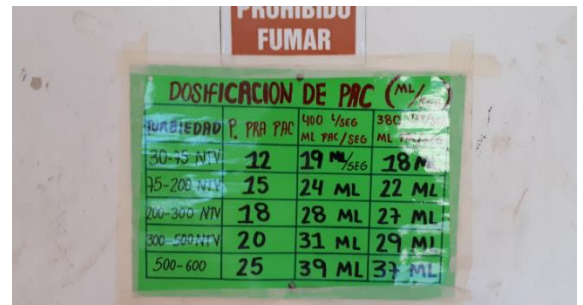 PROHIBIDO
FUMAR
DOSIFICACION DE PAC (ML/
TURBIEDAD P. PRA PAC 400 L/SEG ML PAC/SEG 380 ML
30-75 NTV 12 19 ML/SEG 18 M
75-200 NTV 15 24 ML 22 ML
200-300 NTV 18 28 ML 27 ML
300-500 NTV 20 31 ML 29 ML
500-600 25 39 ML 37 ML